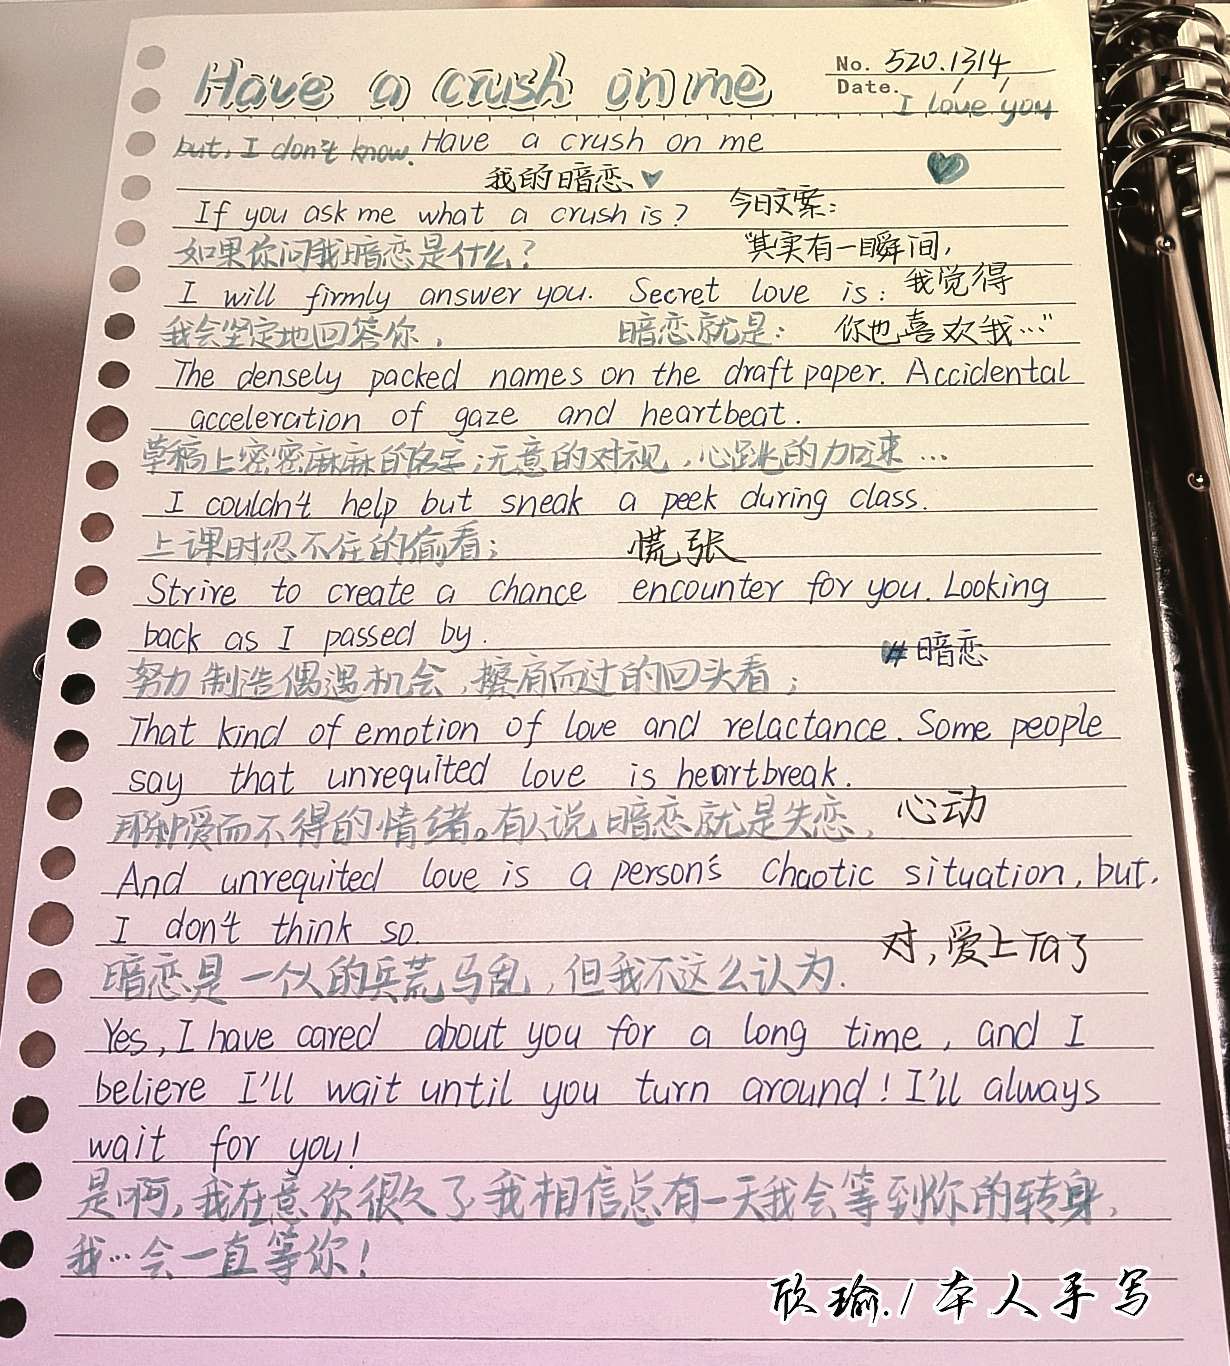 Have a crush on me
No. 520.1314
Date.
I love you
but, I don't know. Have a crush on me
我的暗恋、
If you ask me what a crush is? 今日文案:
如果你问我暗恋是什么? "其实有一瞬间,
I will firmly answer you. Secret love is: 我觉得
我会坚定地回答你, 暗恋就是: 你也喜欢我…"
The densely packed names on the draft paper. Accidental
acceleration of gaze and heartbeat.
草稿上密密麻麻的名字;无意的对视,心跳的加速…
I couldn't help but sneak a peek during class.
上课时忍不住的偷看; 慌张
Strire to create a chance encounter for you. Looking
back as I passed by. #暗恋
努力制造偶遇机会,擦肩而过的回头看;
That kind of emotion of love and relactance. Some people
say that unrequited love is heartbreak.
那种爱而不得的情绪。有人说暗恋就是失恋, 心动
And unrequited love is a person's chaotic situation, but,
I don't think so.
暗恋是一个人的兵荒马乱,但我不这么认为. 对,爱上Ta了
Yes, I have cared about you for a long time, and I
beliere I'll wait until you turn around! I'll always
wait for you!
是啊,我在意你很久了我相信总有一天我会等到你的转身,
我…会一直等你!
欣瑜./本人手写